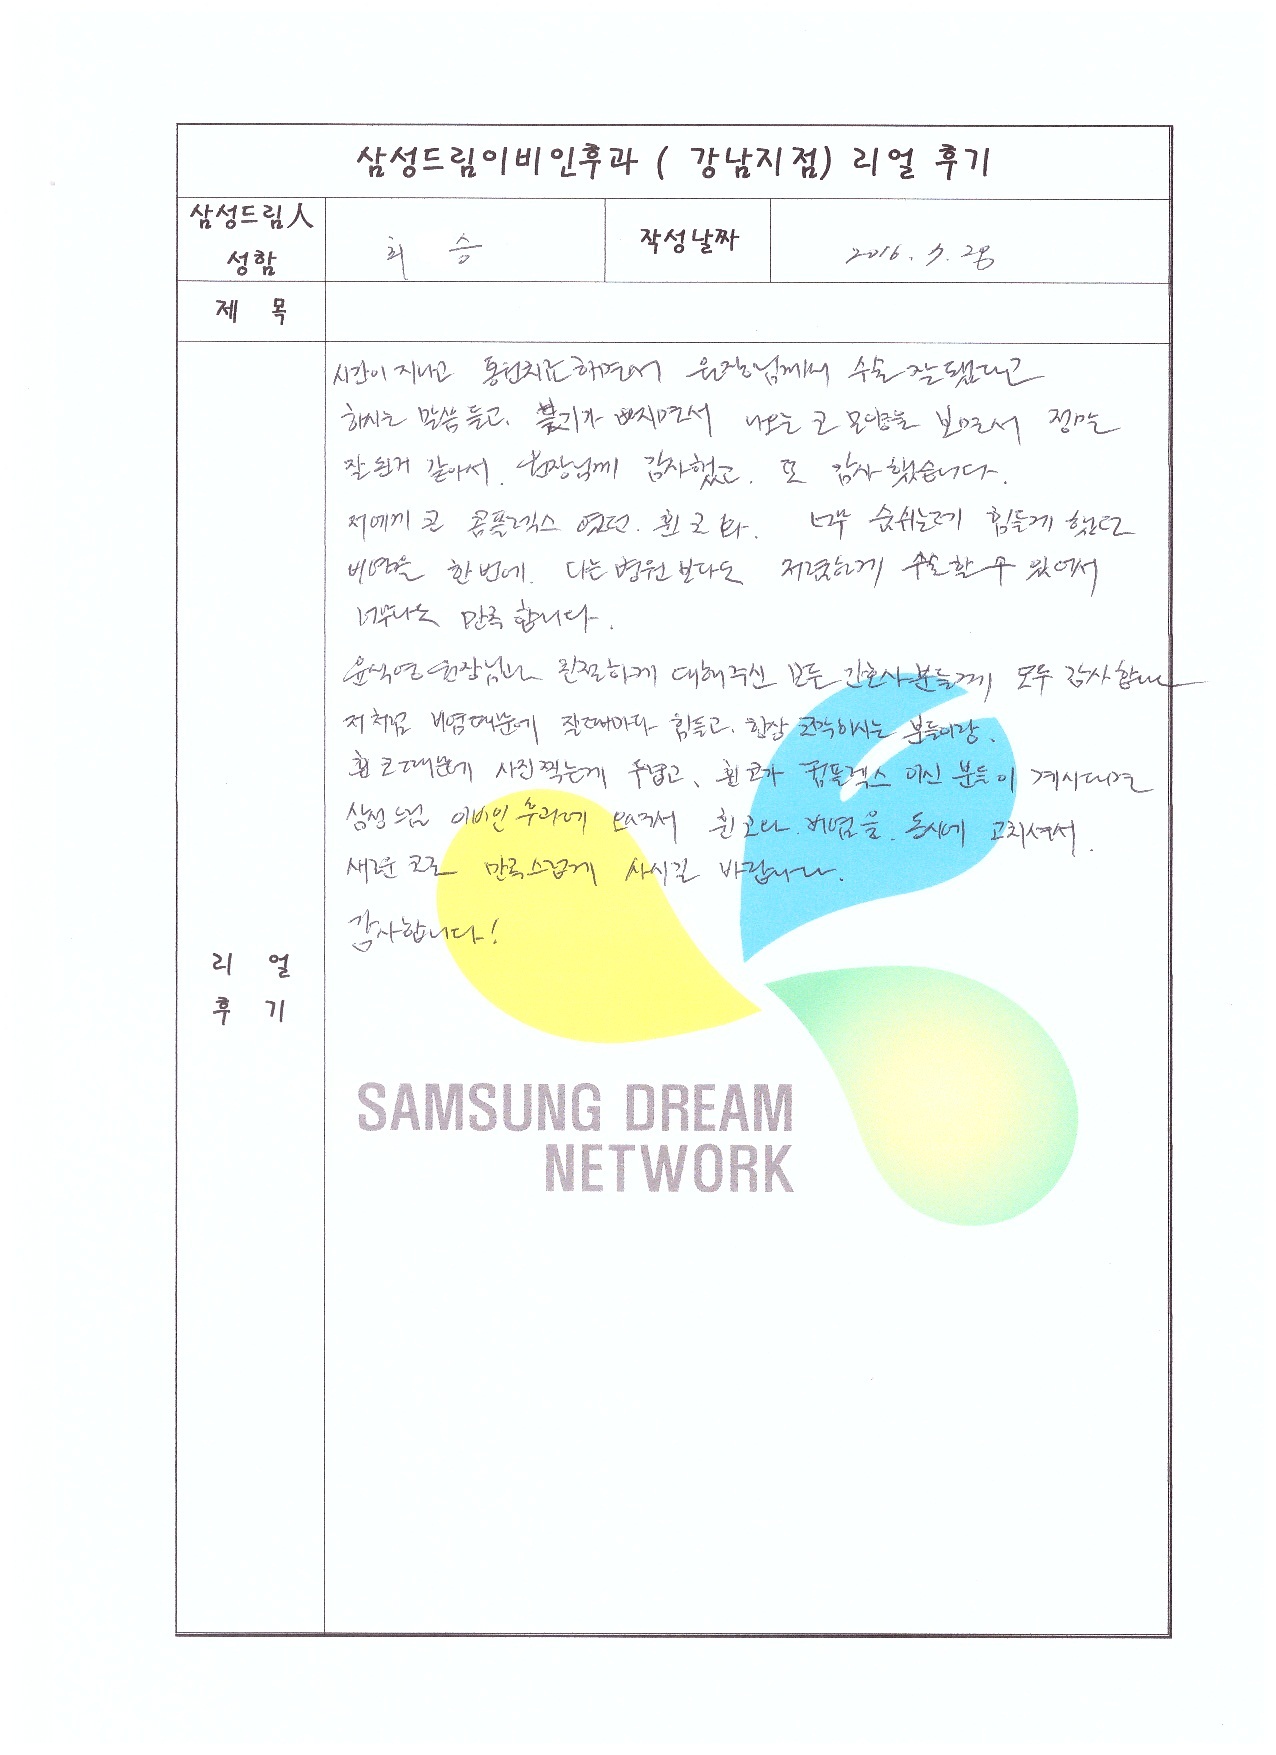 삼성드림이비인후과 ( 강남지점) 리얼 후기
삼성드림人
성함
최 승
작성날짜
2016. 7. 28
제 목
시간이 지나고 통원치료하면서 원장님께서 수술 잘 됐다고
하시는 말씀 듣고. 붓기가 빠지면서 나오는 코 모양을 보면서 정말
잘 된거 같아서. 원장님께 감사했고. 또 감사했습니다.
저에게 큰 콤플렉스 였던. 휜코와. 너무 숨쉬는데 힘들게 했던
비염을 한번에. 다른 병원보다도 저렴하게 수술할 수 있어서
너무나도 만족합니다.
윤석연 원장님과 친절하게 대해주신 모든 간호사분들께 모두 감사합니다
저처럼 비염때문에 잘때마다 힘들고. 항상 하시는 분들이랑.
휜코때문에 사진찍는게 두렵고, 휜코가 컴플렉스 이신 분들이 계시다면
삼성드림 이비인후과에 오셔서 휜코와. 비염을. 동시에 고치셔서.
새로운 코로 만족스럽게 사시길 바랍니다.
감사합니다!
리 얼
후 기
SAMSUNG DREAM
NETWORK